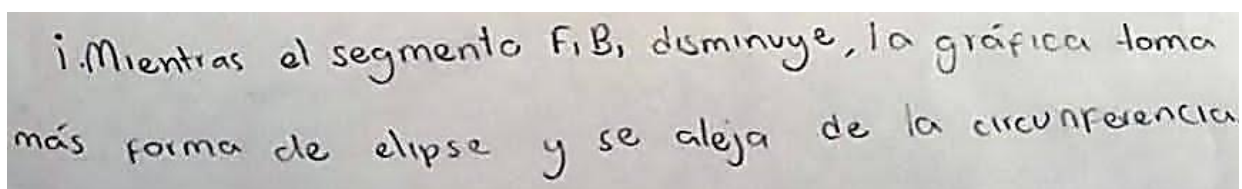 i. Mientras el segmento F₁B₁ disminuye, la gráfica toma
más forma de elipse y se aleja de la circunferencia